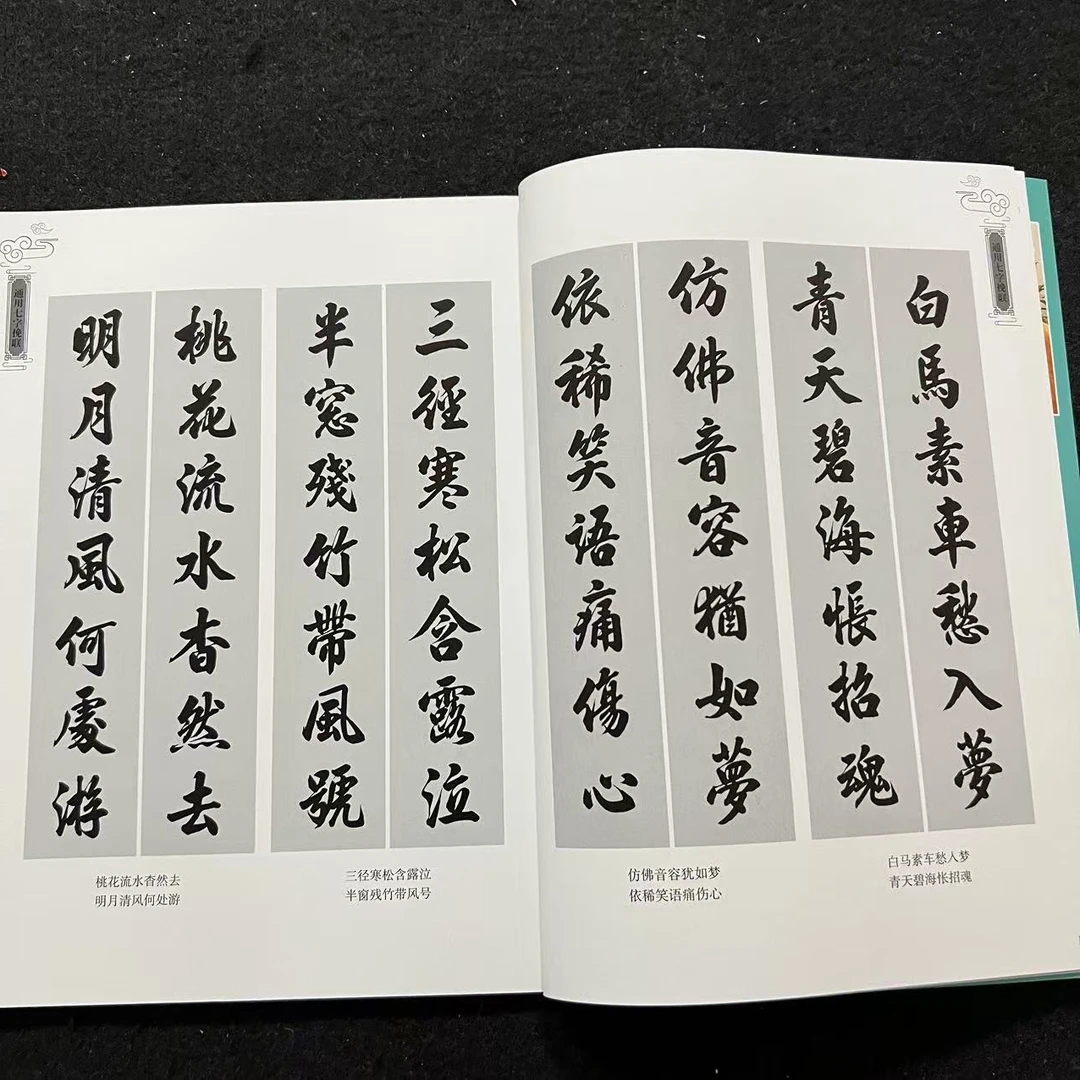 通用七字挽联
明月清風何處游
桃花流水杳然去
半窓殘竹帶風號
三徑寒松含露泣
桃花流水杳然去
明月清风何处游
三径寒松含露泣
半窗残竹带风号
通用七字挽联
依稀笑語痛傷心
仿佛音容猶如夢
青天碧海悵招魂
白馬素車愁入夢
仿佛音容犹如梦
依稀笑语痛伤心
白马素车愁入梦
青天碧海怅招魂